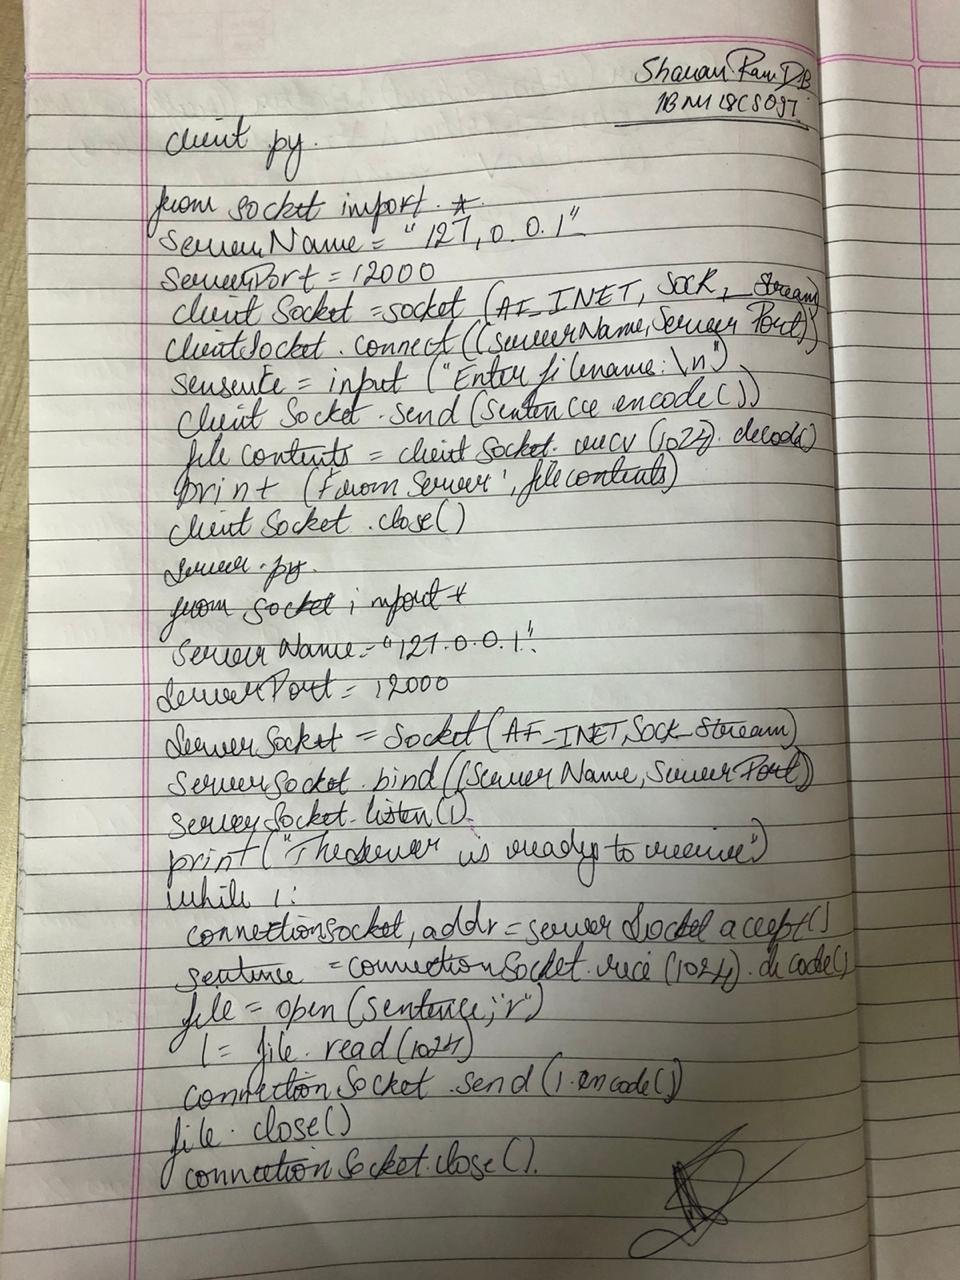 Sharan Ram DB
1BM18CS097
client py.
from socket import *
ServerName = "127,0.0.1"
ServerPort = 12000
client Socket = socket (AF_INET, SOCK_Stream)
clientSocket.connect((serverName, Server Port))
sensente = input ("Enter filename: \n")
client Socket.send (sentence encode())
file contents = client Socket. recv (1024). decode()
print (from Server', filecontents)
client Socket .close()
server.py.
from socket import *
Server Name = "127.0.0.1".
ServerPort = 12000
ServerSocket = Socket (AF_INET, SOCK_Stream)
ServerSocket.bind((Server Name, Server Port))
serverSocket.listen(1).
print ("The server is ready to receive")
while 1:
connectionsocket, addr = server Socket accept()
sentence = connectionSocket.rece (1024).decode()
file = open (sentence,"r")
l = file. read (1024)
connection Socket .send (l.encode())
file. close()
connection Socket.close().